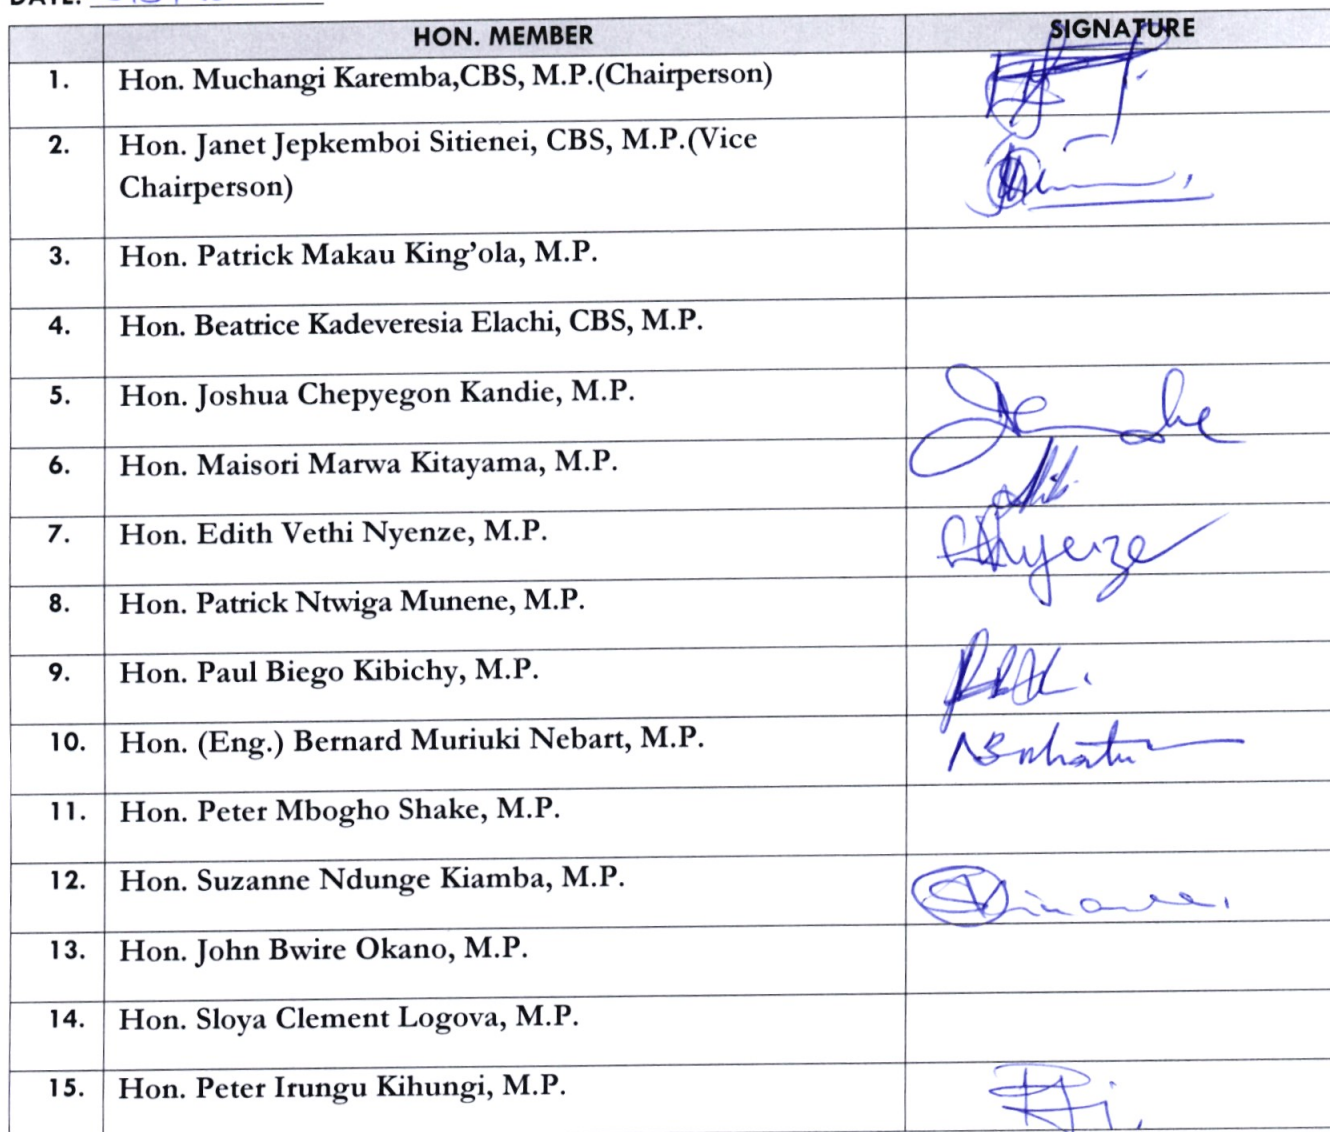 DATE:
HON. MEMBER SIGNATURE
1. Hon. Muchangi Karemba,CBS, M.P.(Chairperson)
2. Hon. Janet Jepkemboi Sitienei, CBS, M.P.(Vice
Chairperson)
3. Hon. Patrick Makau King’ola, M.P.
4. Hon. Beatrice Kadeveresia Elachi, CBS, M.P.
5. Hon. Joshua Chepyegon Kandie, M.P.
6. Hon. Maisori Marwa Kitayama, M.P.
7. Hon. Edith Vethi Nyenze, M.P.
8. Hon. Patrick Ntwiga Munene, M.P.
9. Hon. Paul Biego Kibichy, M.P.
10. Hon. (Eng.) Bernard Muriuki Nebart, M.P.
11. Hon. Peter Mbogho Shake, M.P.
12. Hon. Suzanne Ndunge Kiamba, M.P.
13. Hon. John Bwire Okano, M.P.
14. Hon. Sloya Clement Logova, M.P.
15. Hon. Peter Irungu Kihungi, M.P.